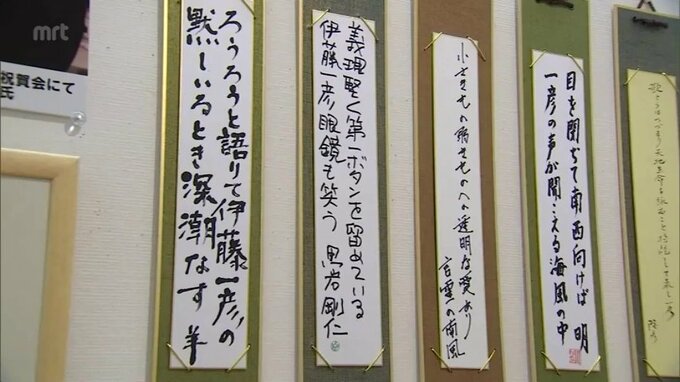 mrt
祝賀会にて
氏
ろうろうと語りて伊藤一彦の
黙しいるとき深潮なす 羊
義理堅く第一ボタンを留めている
伊藤一彦眼鏡も笑う 黒岩剛仁
小さきもの弱きものへの透明な愛あり
言霊の南風
目を閉ぢて南西向けば 明
一彦の声が聞こえる海風の中